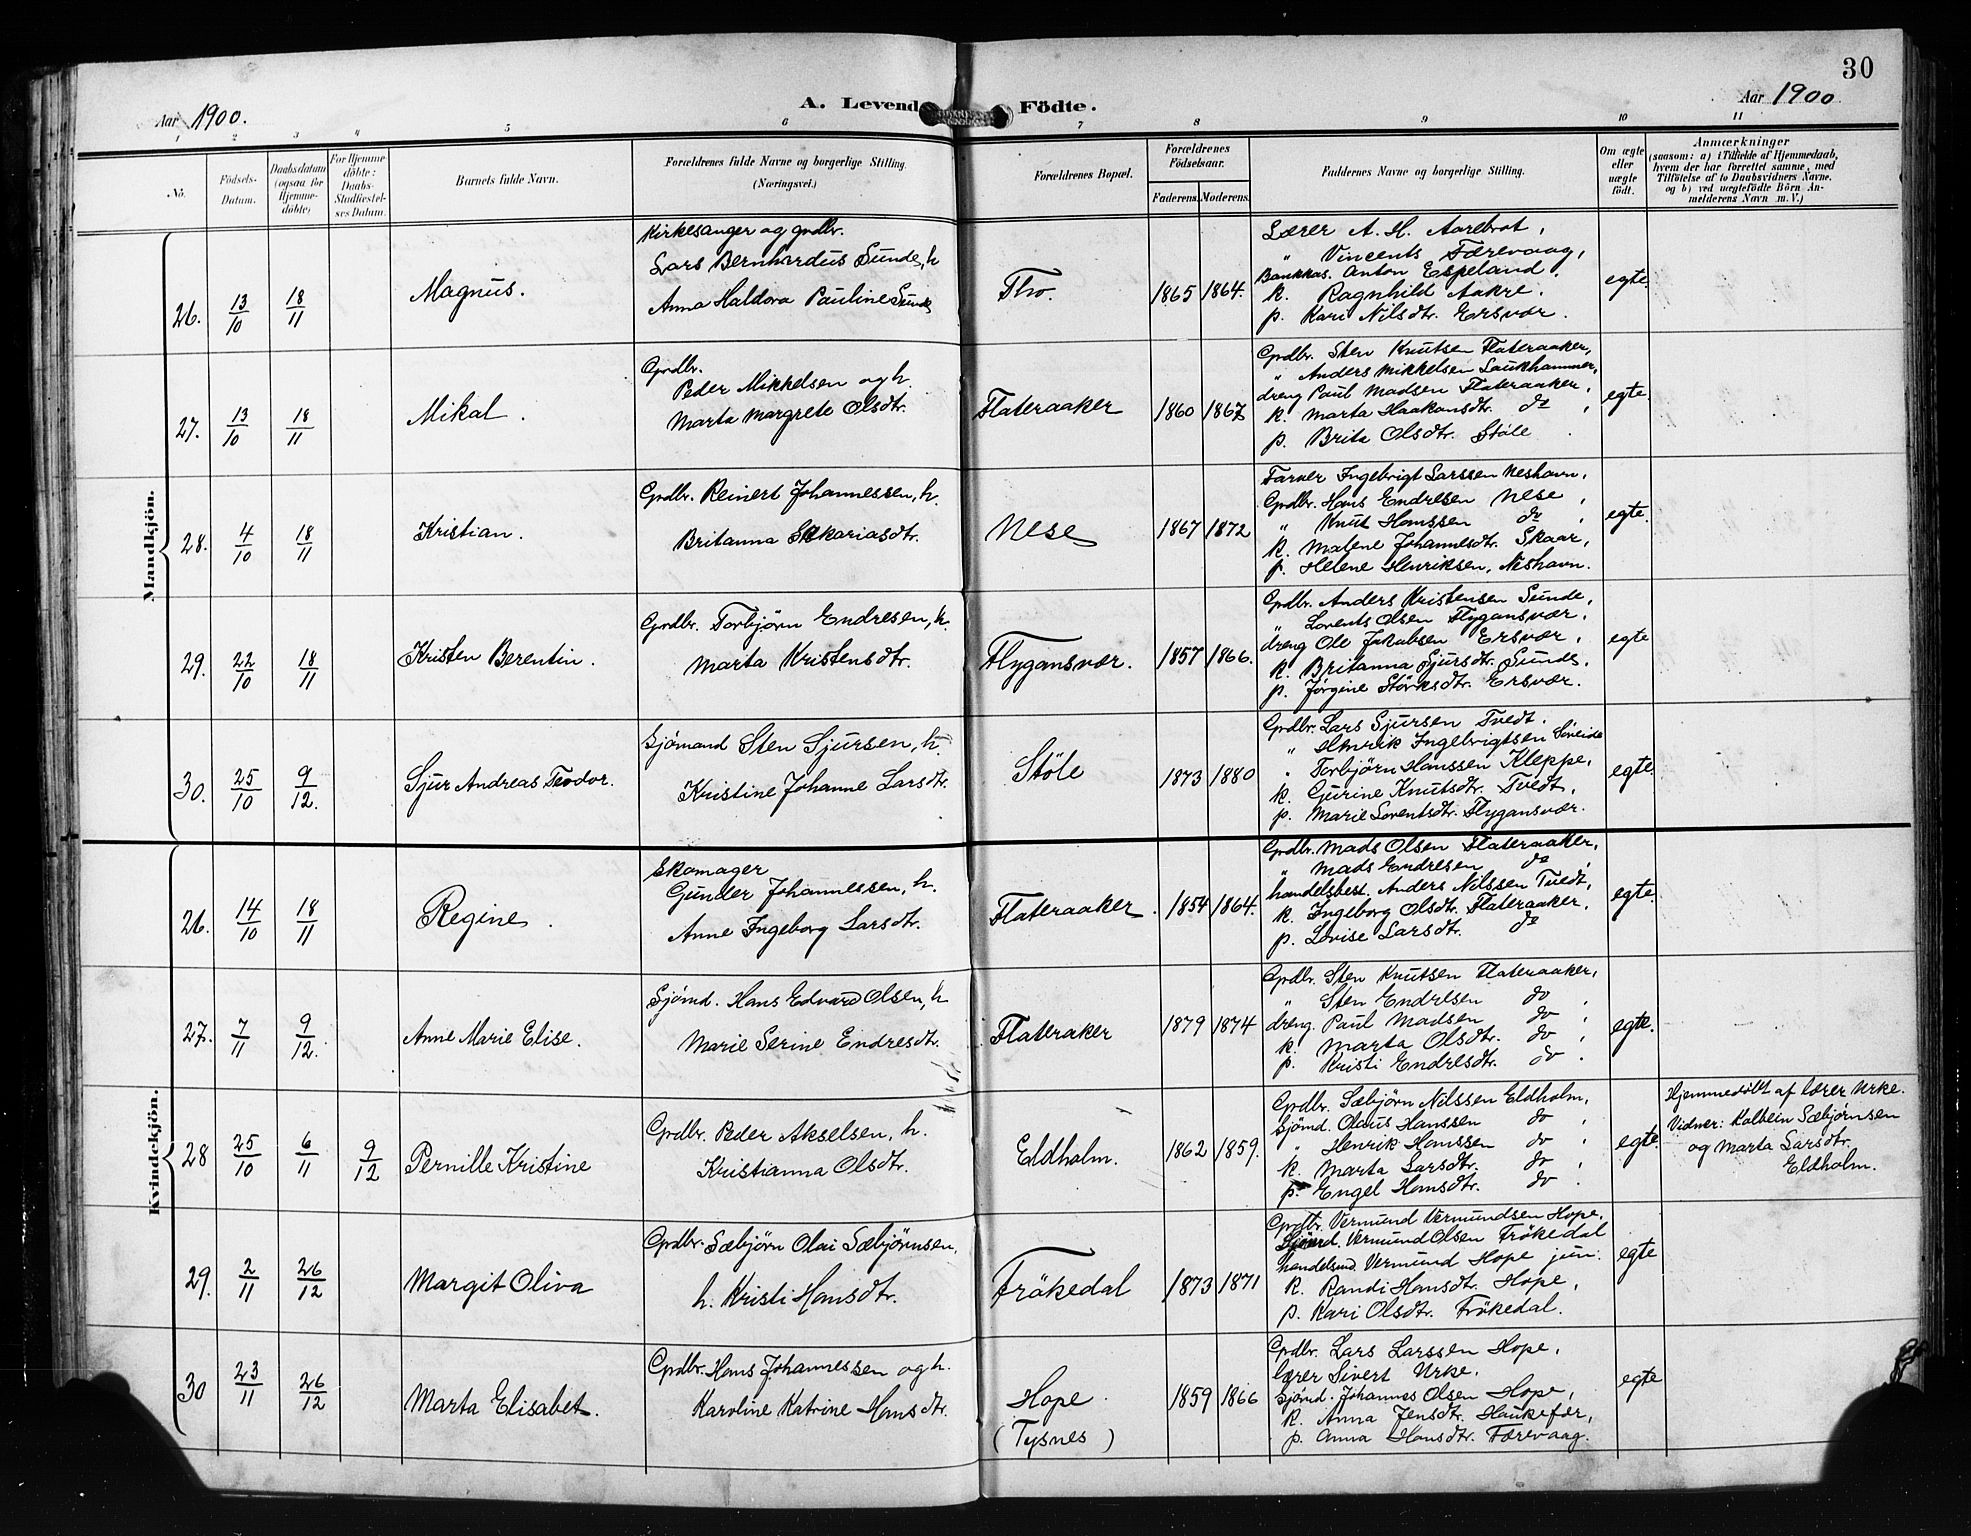 30
Aar 1900.
A. Levende Födte.
Aar 1900.
1 2 3 4 5 6 7 8 9 10 11
No.
Födsels-
Datum.
Daabsdatum
(ogsaa for
Hjemme-
döbte)
For Hjemme-
döbte:
Daabs-
Stadfæstel-
ses Datum.
Barnets fulde Navn.
Forældrenes fulde Navne og borgerlige Stilling.
(Næringsvei.)
Forældrenes Bopæl.
Forældrenes
Födselsaar.
Faderens. Moderens.
Faddernes Navne og borgerlige Stilling.
Om ægte
eller
uægte
födt.
Anmærkninger
(saasom: a) i Tilfælde af Hjemmedaab,
hvem der har forrettet samme, med
Tilföielse af to Daabsvidners Navne.
og b) ved uægtefödte Börn An-
melderens Navn m. V.)
Mandkjön.
26. 13/10 18/11 Magnus.
Kirkesanger og grdbr.
Lars Bernhardus Sunde, h
Anna Haldora Pauline Sunde
Tho. 1865 1864.
Lærer A. H. Aarebrot,
" Vincents Færevaag,
Bankkas. Anton Espeland,
k. Ragnhild Aakre,
p. Kari Nilsdtr. Ersvær.
egte.
27. 13/10 18/11 Mikal.
Grdbr.
Peder Mikkelsen og h.
Marta Margrete Olsdtr.
Flateraaker 1860 1867
Grdbr. Sten Knutsen Flateraaker,
" Anders Mikkelsen Laukhammer,
dreng Paul Madsen Flateraaker,
k. Marta Haakonsdtr. do,
p. Brita Olsdtr. Støle.
egte.
28. 4/10 18/11 Kristian.
Grdbr. Reinert Johannessen, h.
Britanna Sakariasdtr.
Nese 1867 1872
Farver Ingebrigt Larssen Neshavn,
Grdbr. Hans Endresen Nese,
" Knut Hanssen do,
k. Malene Johannesdtr. Skaar,
p. Helene Henriksen, Neshavn.
egte.
29. 22/10 18/11 Kristen Berentin.
Grdbr. Torbjørn Endresen, h.
Marta Kristensdtr.
Flygansvær. 1857 1866.
Grdbr. Anders Kristensen Sunde,
" Lorents Olsen Flygansvær,
dreng Ole Jakobsen Ersvær,
k. Britanna Sjursdtr. Sunde,
p. Jørgine Størksdtr. Ersvær.
egte
30. 25/10 9/12. Sjur Andreas Teodor.
Sjömand Sten Sjursen, h.
Kristine Johanne Larsdtr.
Støle 1873 1880
Grdbr. Lars Sjursen Tvedt.
" Henrik Ingebrigtsen Søreide
" Torbjørn Hanssen Kleppe,
k. Gurine Knutsdtr. Tvedt,
p. Marie Lorentsdtr. Flygansvær.
egte.
Kvindekjön.
26. 14/10 18/11 Regine.
Skomager
Gunder Johannessen, h.
Anne Ingeborg Larsdtr.
Flateraaker. 1854 1864.
Grdbr. Mads Olsen Flateraaker,
" Mads Endresen do,
handelsbest. Anders Nilssen Tvedt,
k. Ingeborg Olsdtr. Flateraaker,
p. Lovise Larsdtr. do
egte.
27. 7/11 9/12. Anne Marie Elise.
Sjömd. Hans Edvard Olsen, h
Marie Serine Endresdtr.
Flateraker 1879 1874
Grdbr. Sten Knutsen Flateraaker,
" Sten Endresen do,
dreng. Paul Madsen do,
k. Marta Olsdtr. do,
p. Kristi Endresdtr. do.
egte.
28 25/10 6/11 9/12 Pernille Kristine
Grdbr. Peder Akselsen, h.
Kristianna Olsdtr.
Eldholm. 1862 1859.
Grdbr. Sæbjørn Nilssen Eldholm,
Sjömd. Olaus Hanssen do,
" Henrik Hanssen do,
k. Marta Larsdtr. do,
p. Engel Hansdtr. do.
egte.
Hjemmedøbt af lærer Urke.
Vidner: Kolbein Sæbjørnsen
og Marta Larsdtr.
Eldholm.
29. 2/11 26/12 Margit Oliva
Grdbr. Sæbjörn Olai Sæbjörnsen,
h. Kristi Hansdtr.
Frökedal 1873 1871
Grdbr. Vermund Vermundsen Hope,
Sjömd. Vermund Olsen Frökedal
handelsmd. Vermund Hope jun.
k. Randi Hansdtr. Hope,
p. Kari Olsdtr. Frökedal.
egte
30 23/11 26/12 Marta Elisabet.
Grdbr. Hans Johannessen og h.
Karoline Katrine Hansdtr.
Hope
(Tysnes)
1859 1866
Grdbr. Lars Larssen Hope,
lærer Sivert Urke,
Sjömd. Johannes Olsen Hope,
k. Anna Jensdtr. Haukefær,
p. Anna Hansdtr. Færevaag.
egte